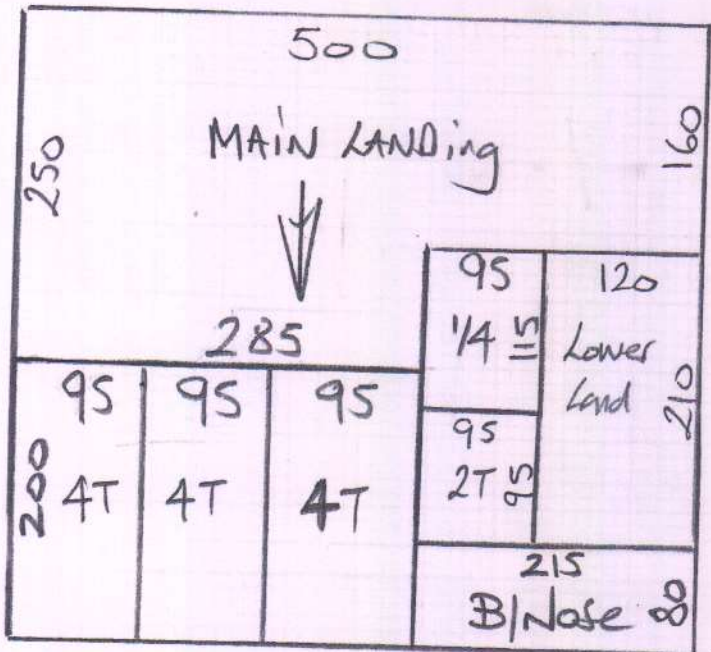 500
MAIN LANDING
250
160
285
95
1/4
115
120
Lower
Land
210
95
2T
95
95
4T
200
95
4T
95
4T
215
B/Nose
80